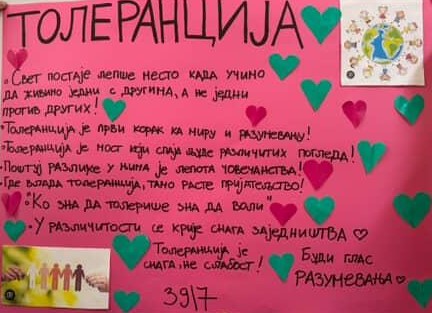 ТОЛЕРАНЦИЈА
• Свет постаје лепше место када учимо
да живимо једни с другима, а не једни
против других!
• Толеранција је први корак ка миру и разумевању!
• Толеранција је мост који спаја људе различитих погледа!
• Поштуј разлике у њима је лепота човечанства!
• Где влада толеранција, тамо расте пријатељство!
• "Ко зна да толерише зна да воли"
• У различитости се крије снага заједништва ♡
Толеранција је
снага, не слабост!
Буди глас
РАЗУМЕВАЊА ♡
39/7